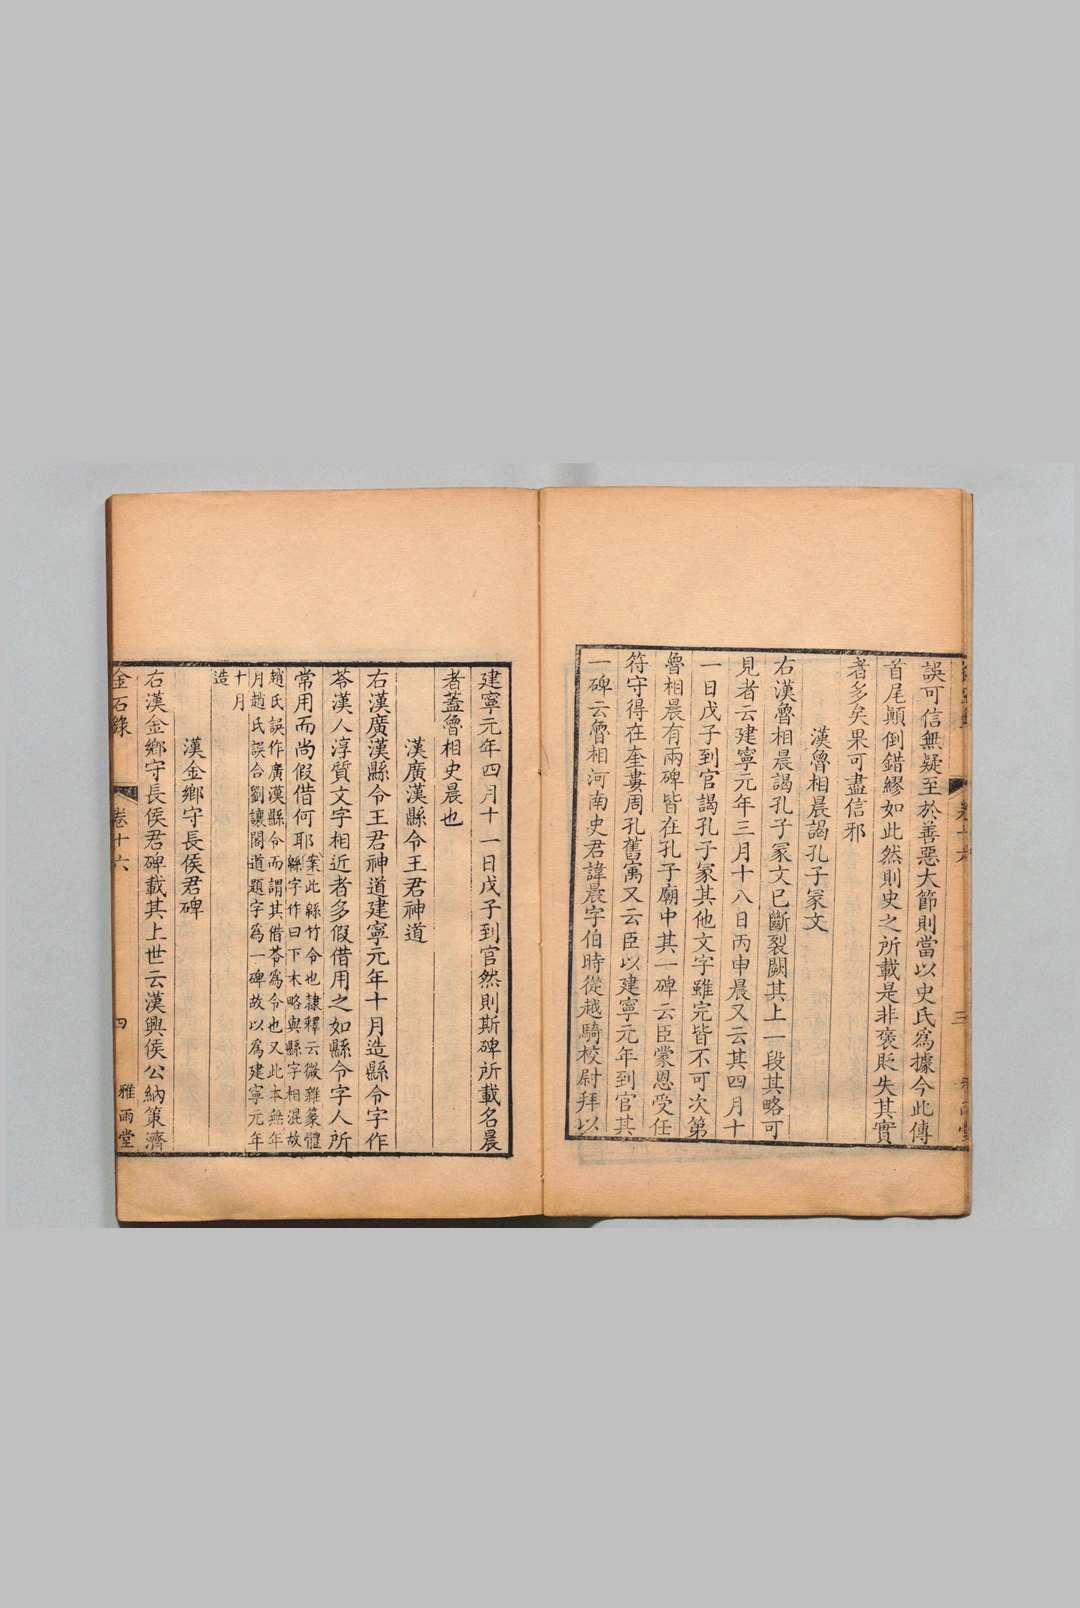 誤可信無疑至於善惡大節則當以史氏爲據今此傳
首尾顛倒錯繆如此然則史之所載是非褒貶失其實
者多矣果可盡信邪
漢魯相晨謁孔子冢文
右漢魯相晨謁孔子冢文已斷裂闕其上一段其略可
見者云建寧元年三月十八日丙申晨又云其四月十
一日戊子到官謁孔子冢其他文字雖完皆不可次第
魯相晨有兩碑皆在孔子廟中其一碑云臣蒙恩受任
符守得在奎婁周孔舊寓又云臣以建寧元年到官其
一碑云魯相河南史君諱晨字伯時從越騎校尉拜以
建寧元年四月十一日戊子到官然則斯碑所載名晨
者蓋魯相史晨也
漢廣漢縣令王君神道
右漢廣漢縣令王君神道建寧元年十月造縣令字作
苓漢人淳質文字相近者多假借用之如縣令字人所
常用而尚假借何耶
案此緜竹令也隸釋云微雜篆體
緜字作曰下木略與縣字相混故
趙氏誤作廣漢縣令而謂其借苓爲令也又此本無年
月趙氏誤合劉讓閣道題字爲一碑故以爲建寧元年
十月
造
漢金鄉守長侯君碑
右漢金鄉守長侯君碑載其上世云漢興侯公納策濟
金石錄
卷十六
四
雅雨堂